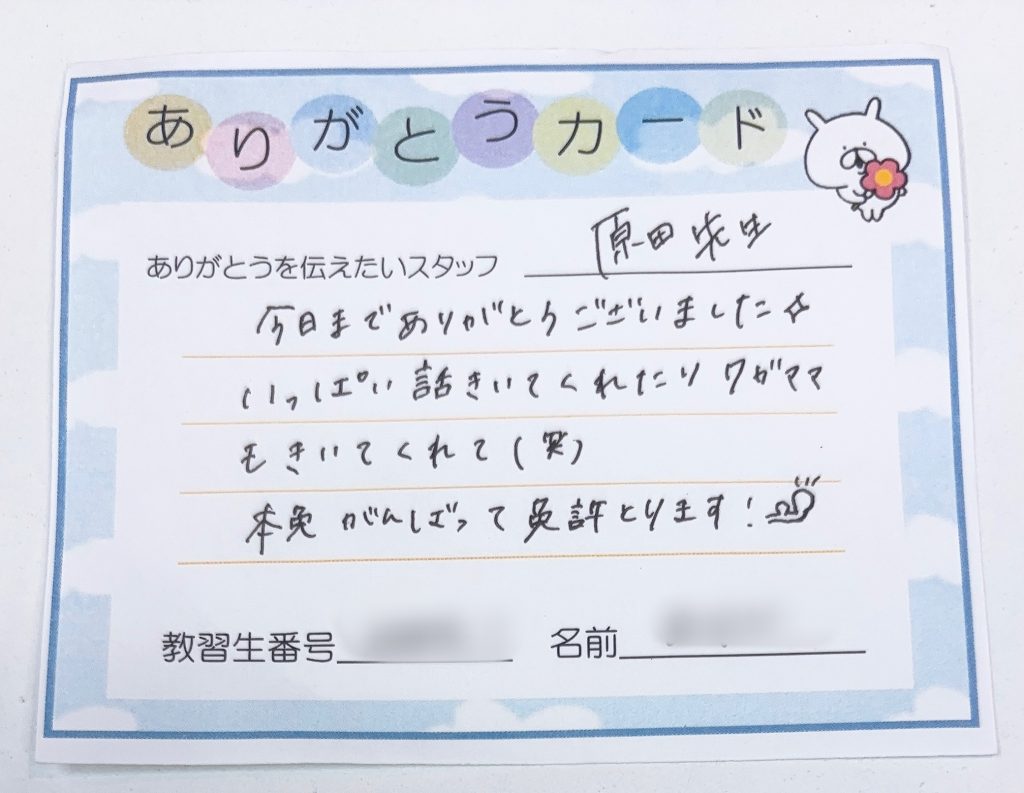 ありがとうカード
ありがとうを伝えたいスタッフ 原田先生
今日までありがとうございました☆
いっぱい話きいてくれたり ワガママ
もきいてくれて(笑)
本免がんばって免許とります!
教習生番号 名前